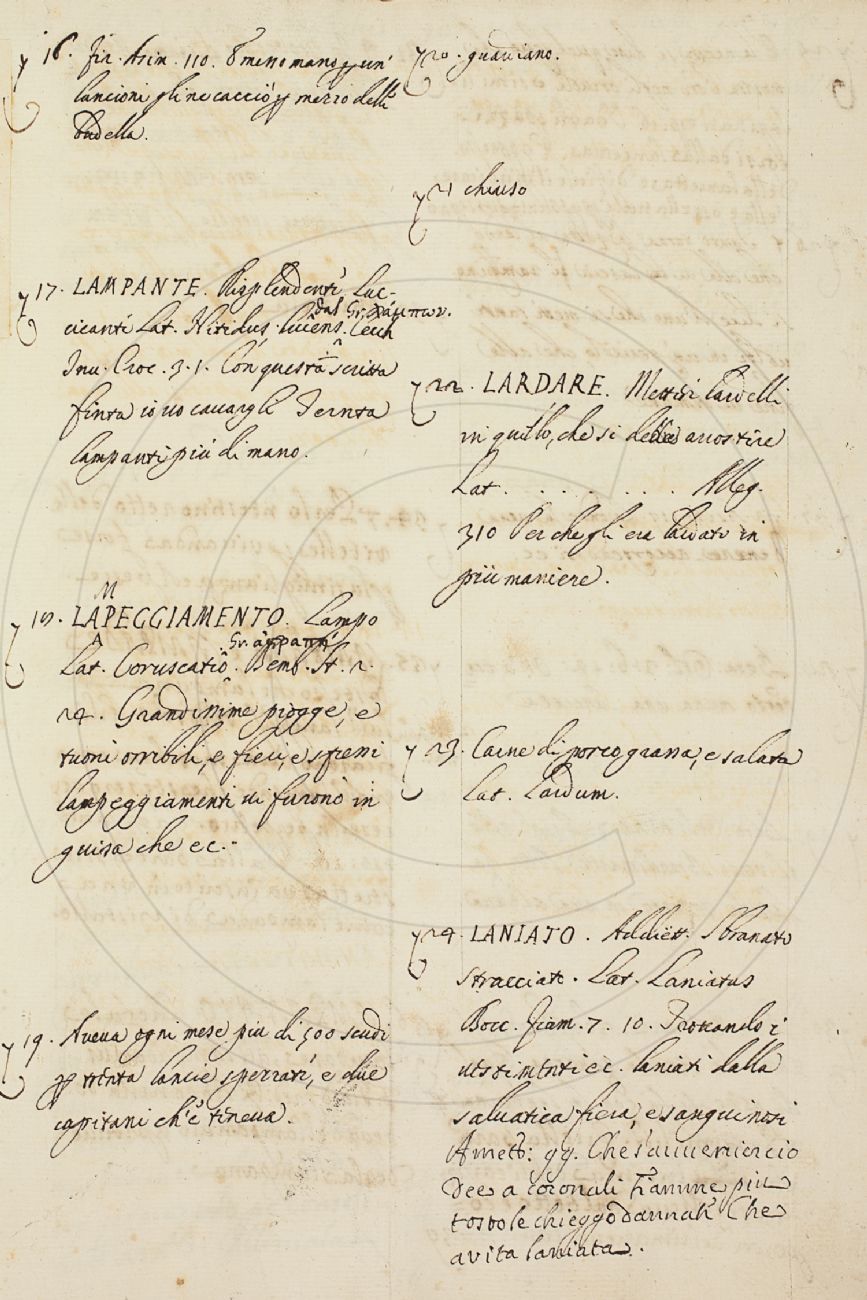 16. Fir. Asin. 110. E meno mano p un'
lancioni gli ne cacciò p mezzo delle
budella.
17. LAMPANTE. Risplendente, Luc-
cicante Lat. Nitidus, lucens. Cecch
dal Gr. λάμπων.
Inu. Croc. 3. 1. Con questa scritta
finta io uo cauargli Trenta
lampanti più di mano.
18. LAPEGGIAMENTO. Lampo
M
A
Lat. Coruscatiõ. Bemb. St. 2.
Gr. ἀστραπή
24. Grandissime piogge, e
tuoni orribili, e fieri, e spessi
lampeggiamenti ui furono in
guisa che ec.
19. Aueua ogni mese piu di 500 scudi
p trenta lancie spezzate, e due
capitani ch'e' teneua.
20. guardiano.
21 chiuso
22. LARDARE. Mettere lardelli
in quello, che si debbe arrostire
Lat. . . . . . . . Alleg.
310 Perche gli era lardato in
più maniere.
23. Carne di porco grassa, e salata
Lat. Lardum.
24. LANIATO. Addiett. Sbranato
stracciato. Lat. Laniatus
Bocc. Fiam. 7. 10. Trouando i
uestimenti ec. laniati dalla
saluatica fiera, e sanguinosi
Amet. 99. Che
Dee a fiamme piu
tosto le chieggo dannate Che
a vita laniata.